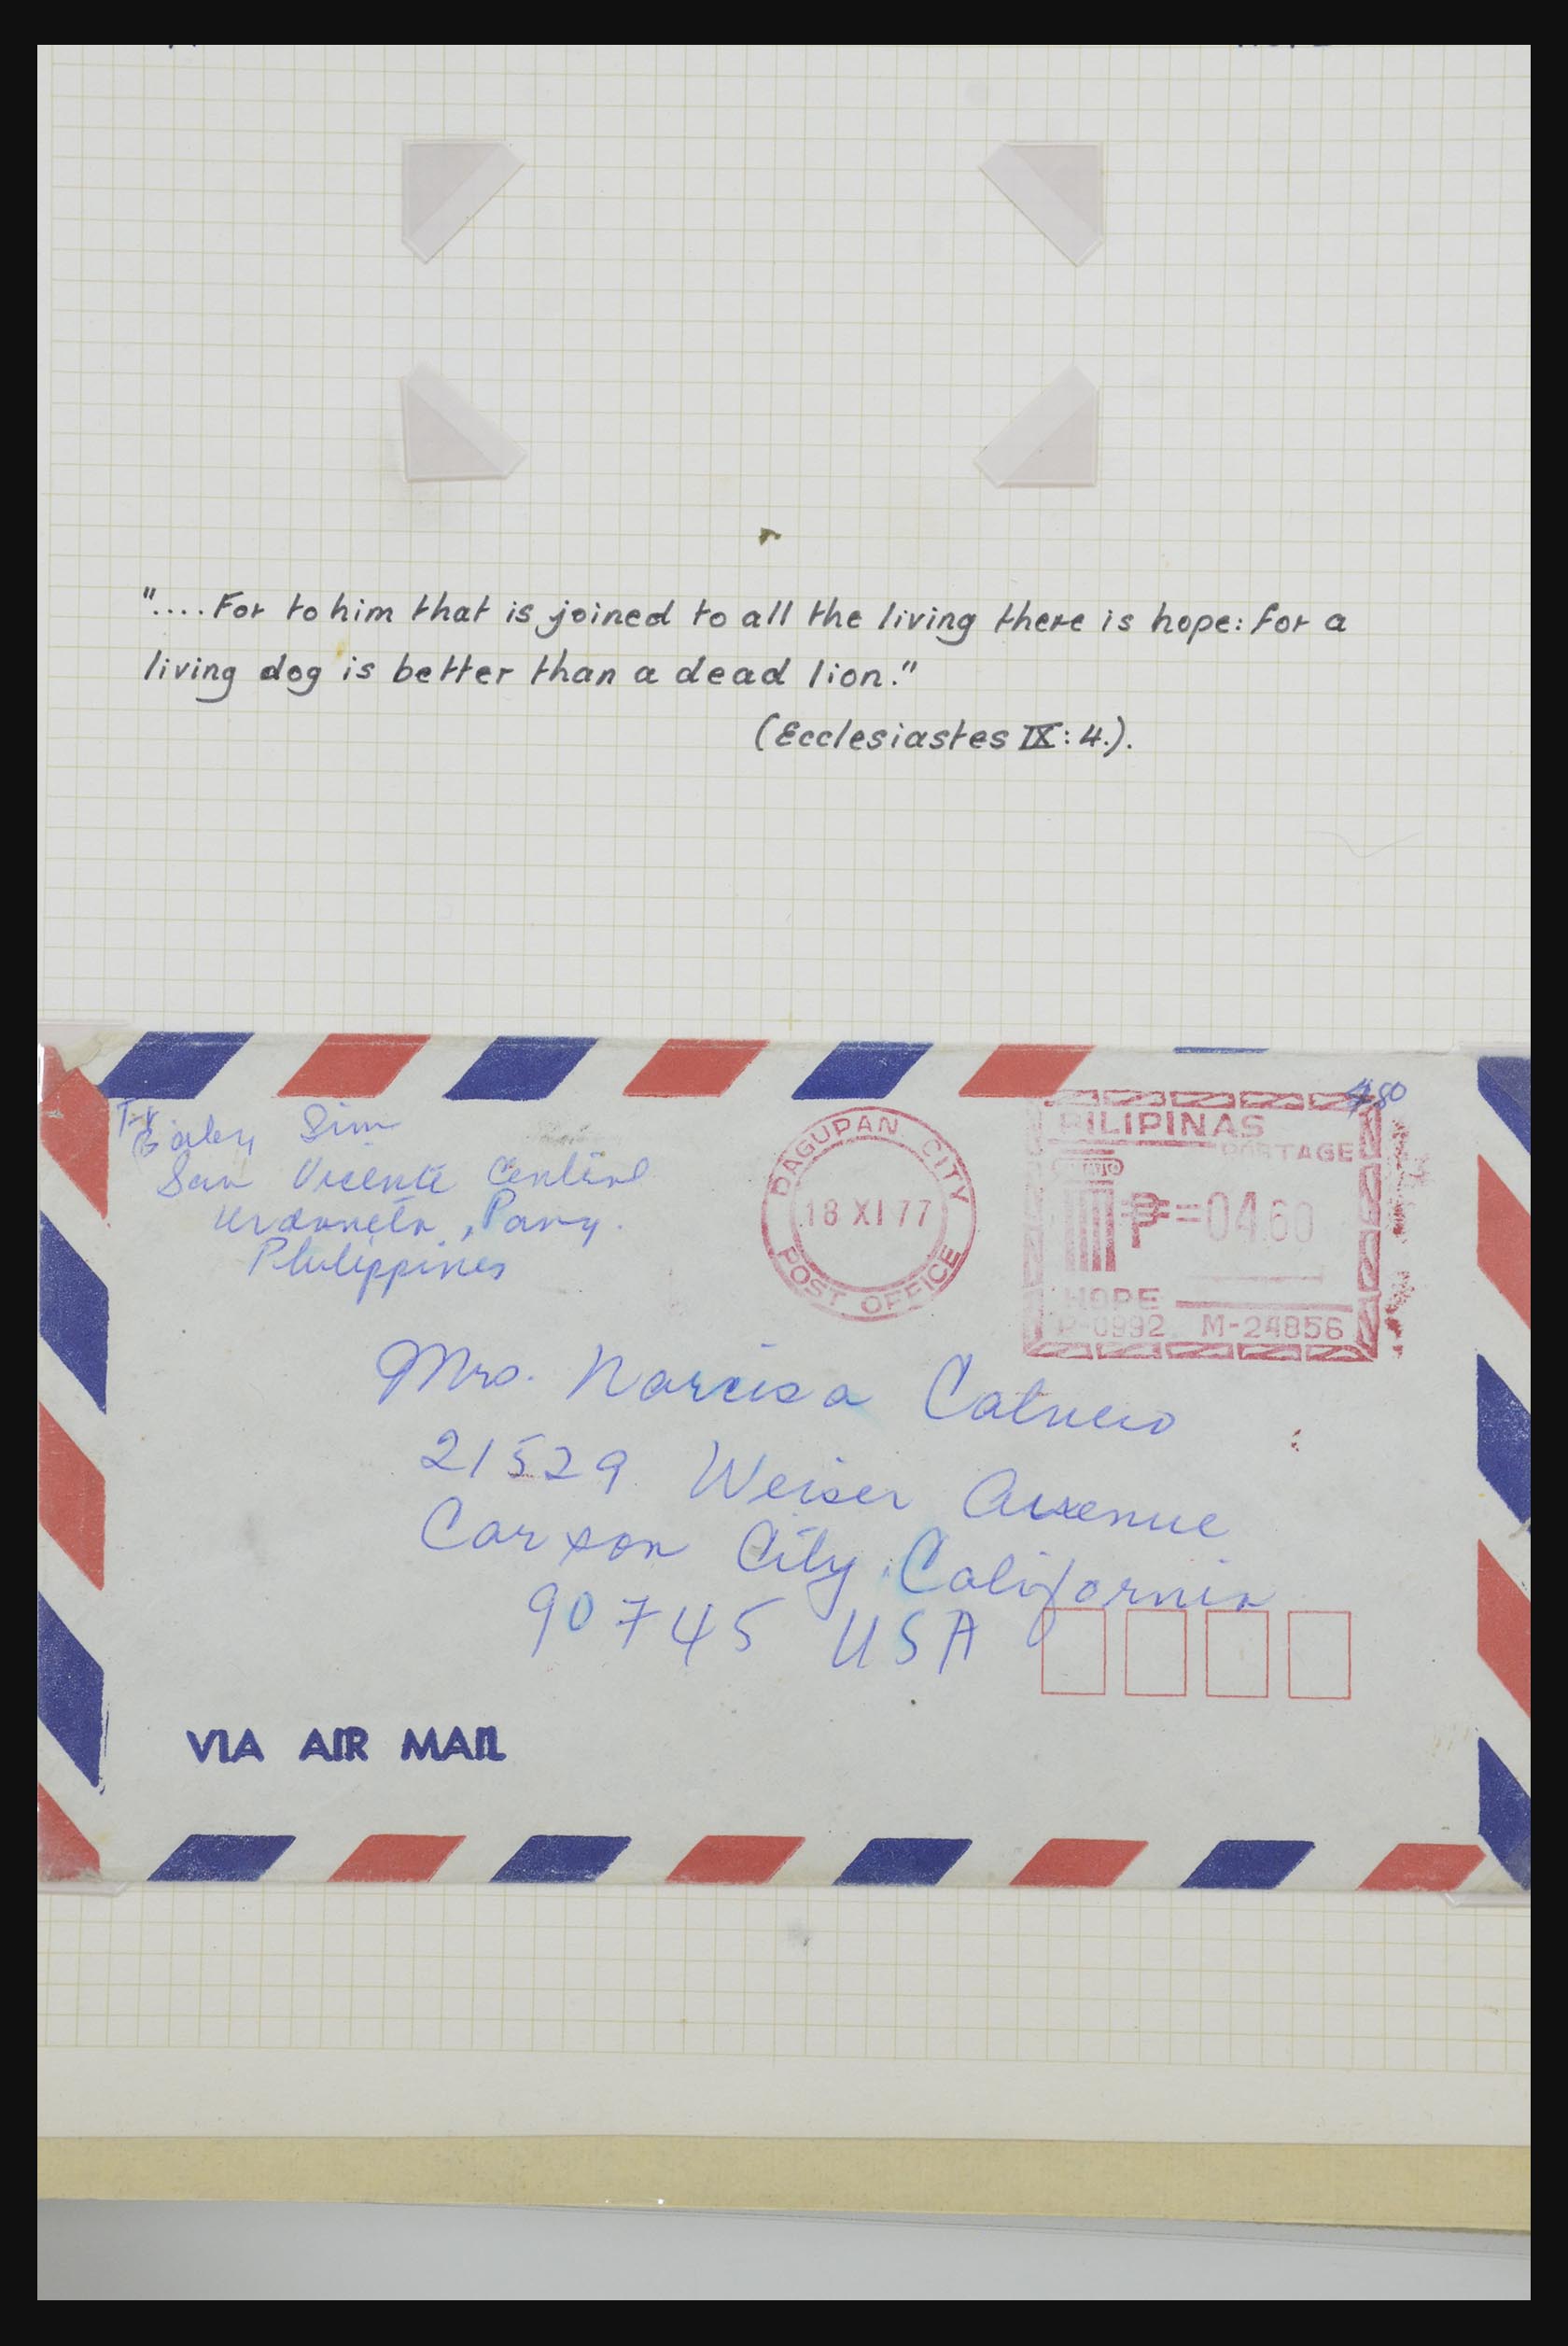 "....For to him that is joined to all the living there is hope: for a
living dog is better than a dead lion."
(Ecclesiastes IX: 4.).
Fr
Sim
San Vicente Central
Urdaneta, Pang.
Philippines
DAGUPAN CITY
18 XI 77
POST OFFICE
PILIPINAS
POSTAGE
₱=04.60
HOPE
P-0992 M-24856
Mrs. Narcisa
21529 Weiser Avenue
Carson City, California
90745 USA
VIA AIR MAIL